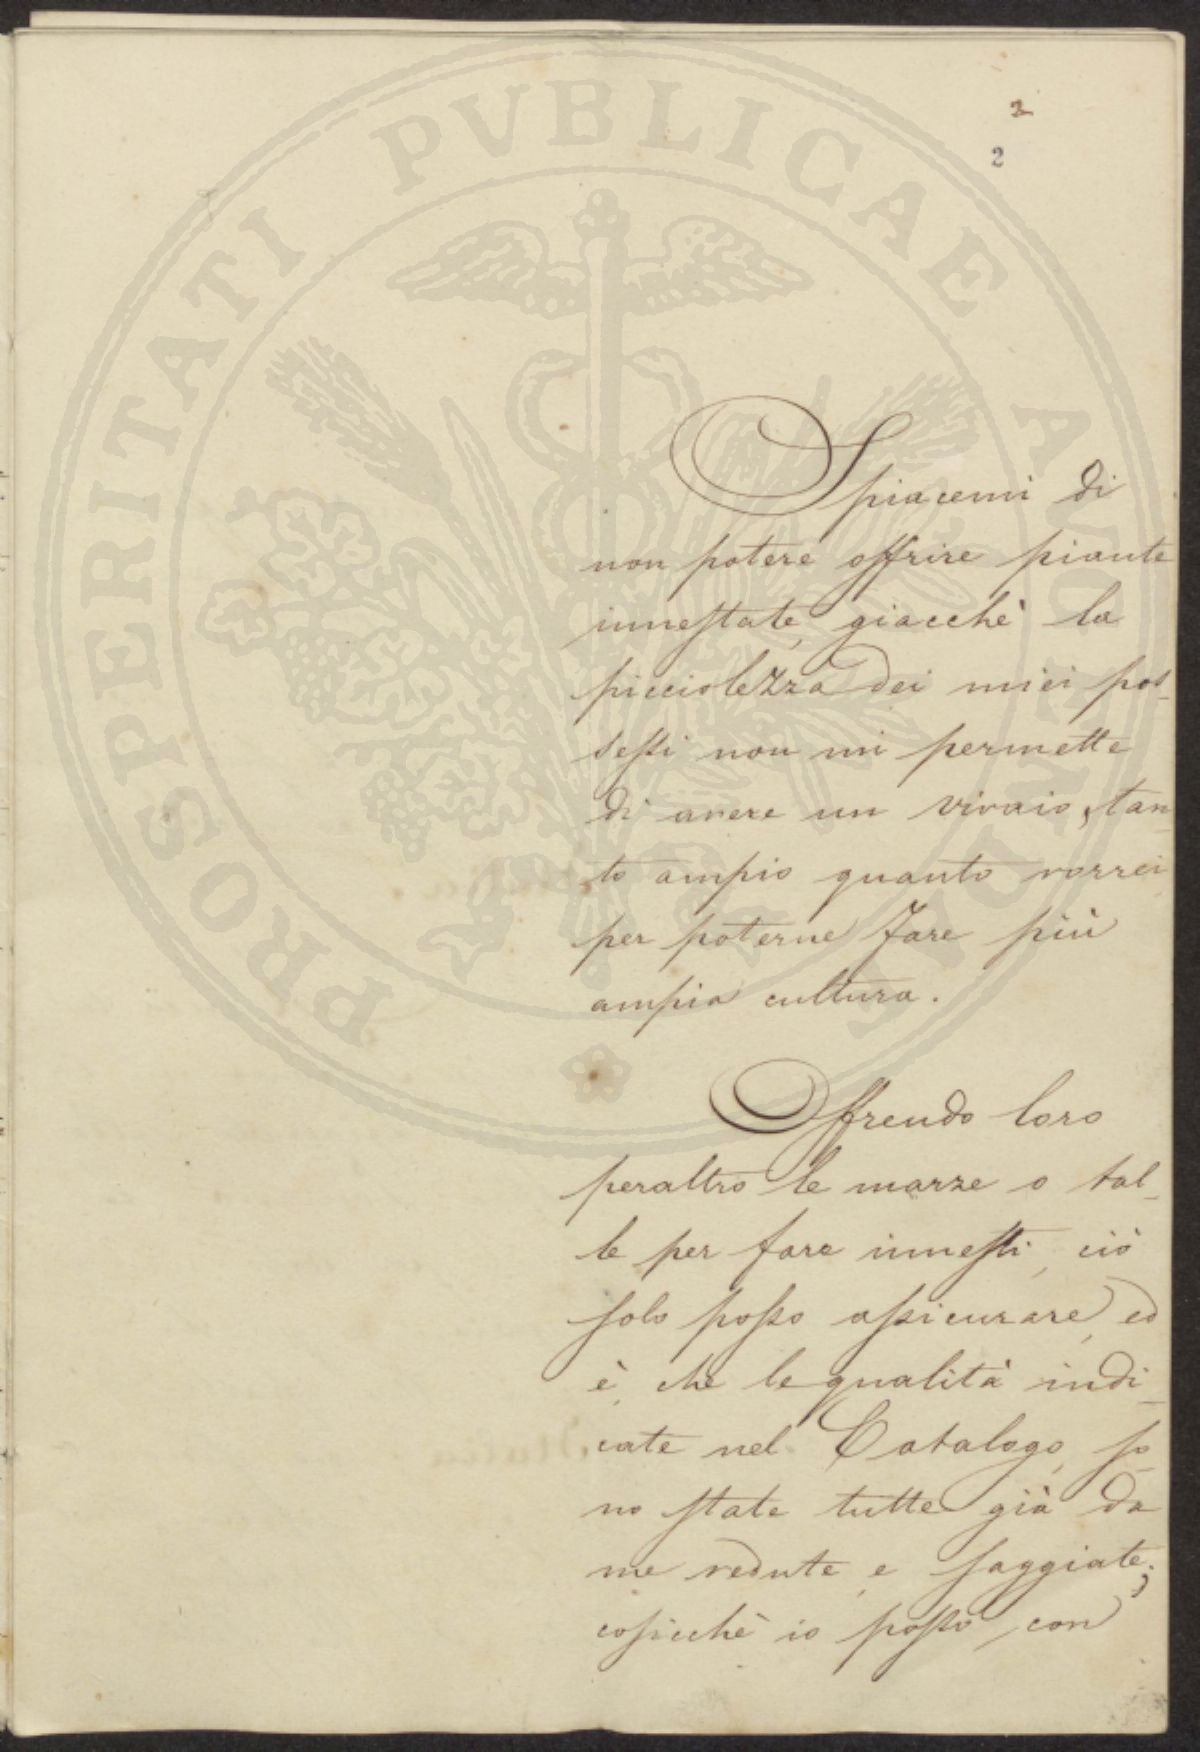 2
2
Spiacemi di
non potere offrire piante
innestate, giacchè la
picciolezza dei miei pos-
sessi non mi permette
di avere un vivaio, tan-
to ampio quanto vorrei
per poterne fare più
ampia cultura.
Offrendo loro
peraltro le marze o tal-
le per fare innesti, ciò
solo posso assicurare, ed
è, che le qualità indi-
cate nel Catalogo, so-
no state tutte già da
me vedute, e saggiate;
cosicchè io posso, con
PROSPERITATI PVBLICAE AVGENDAE